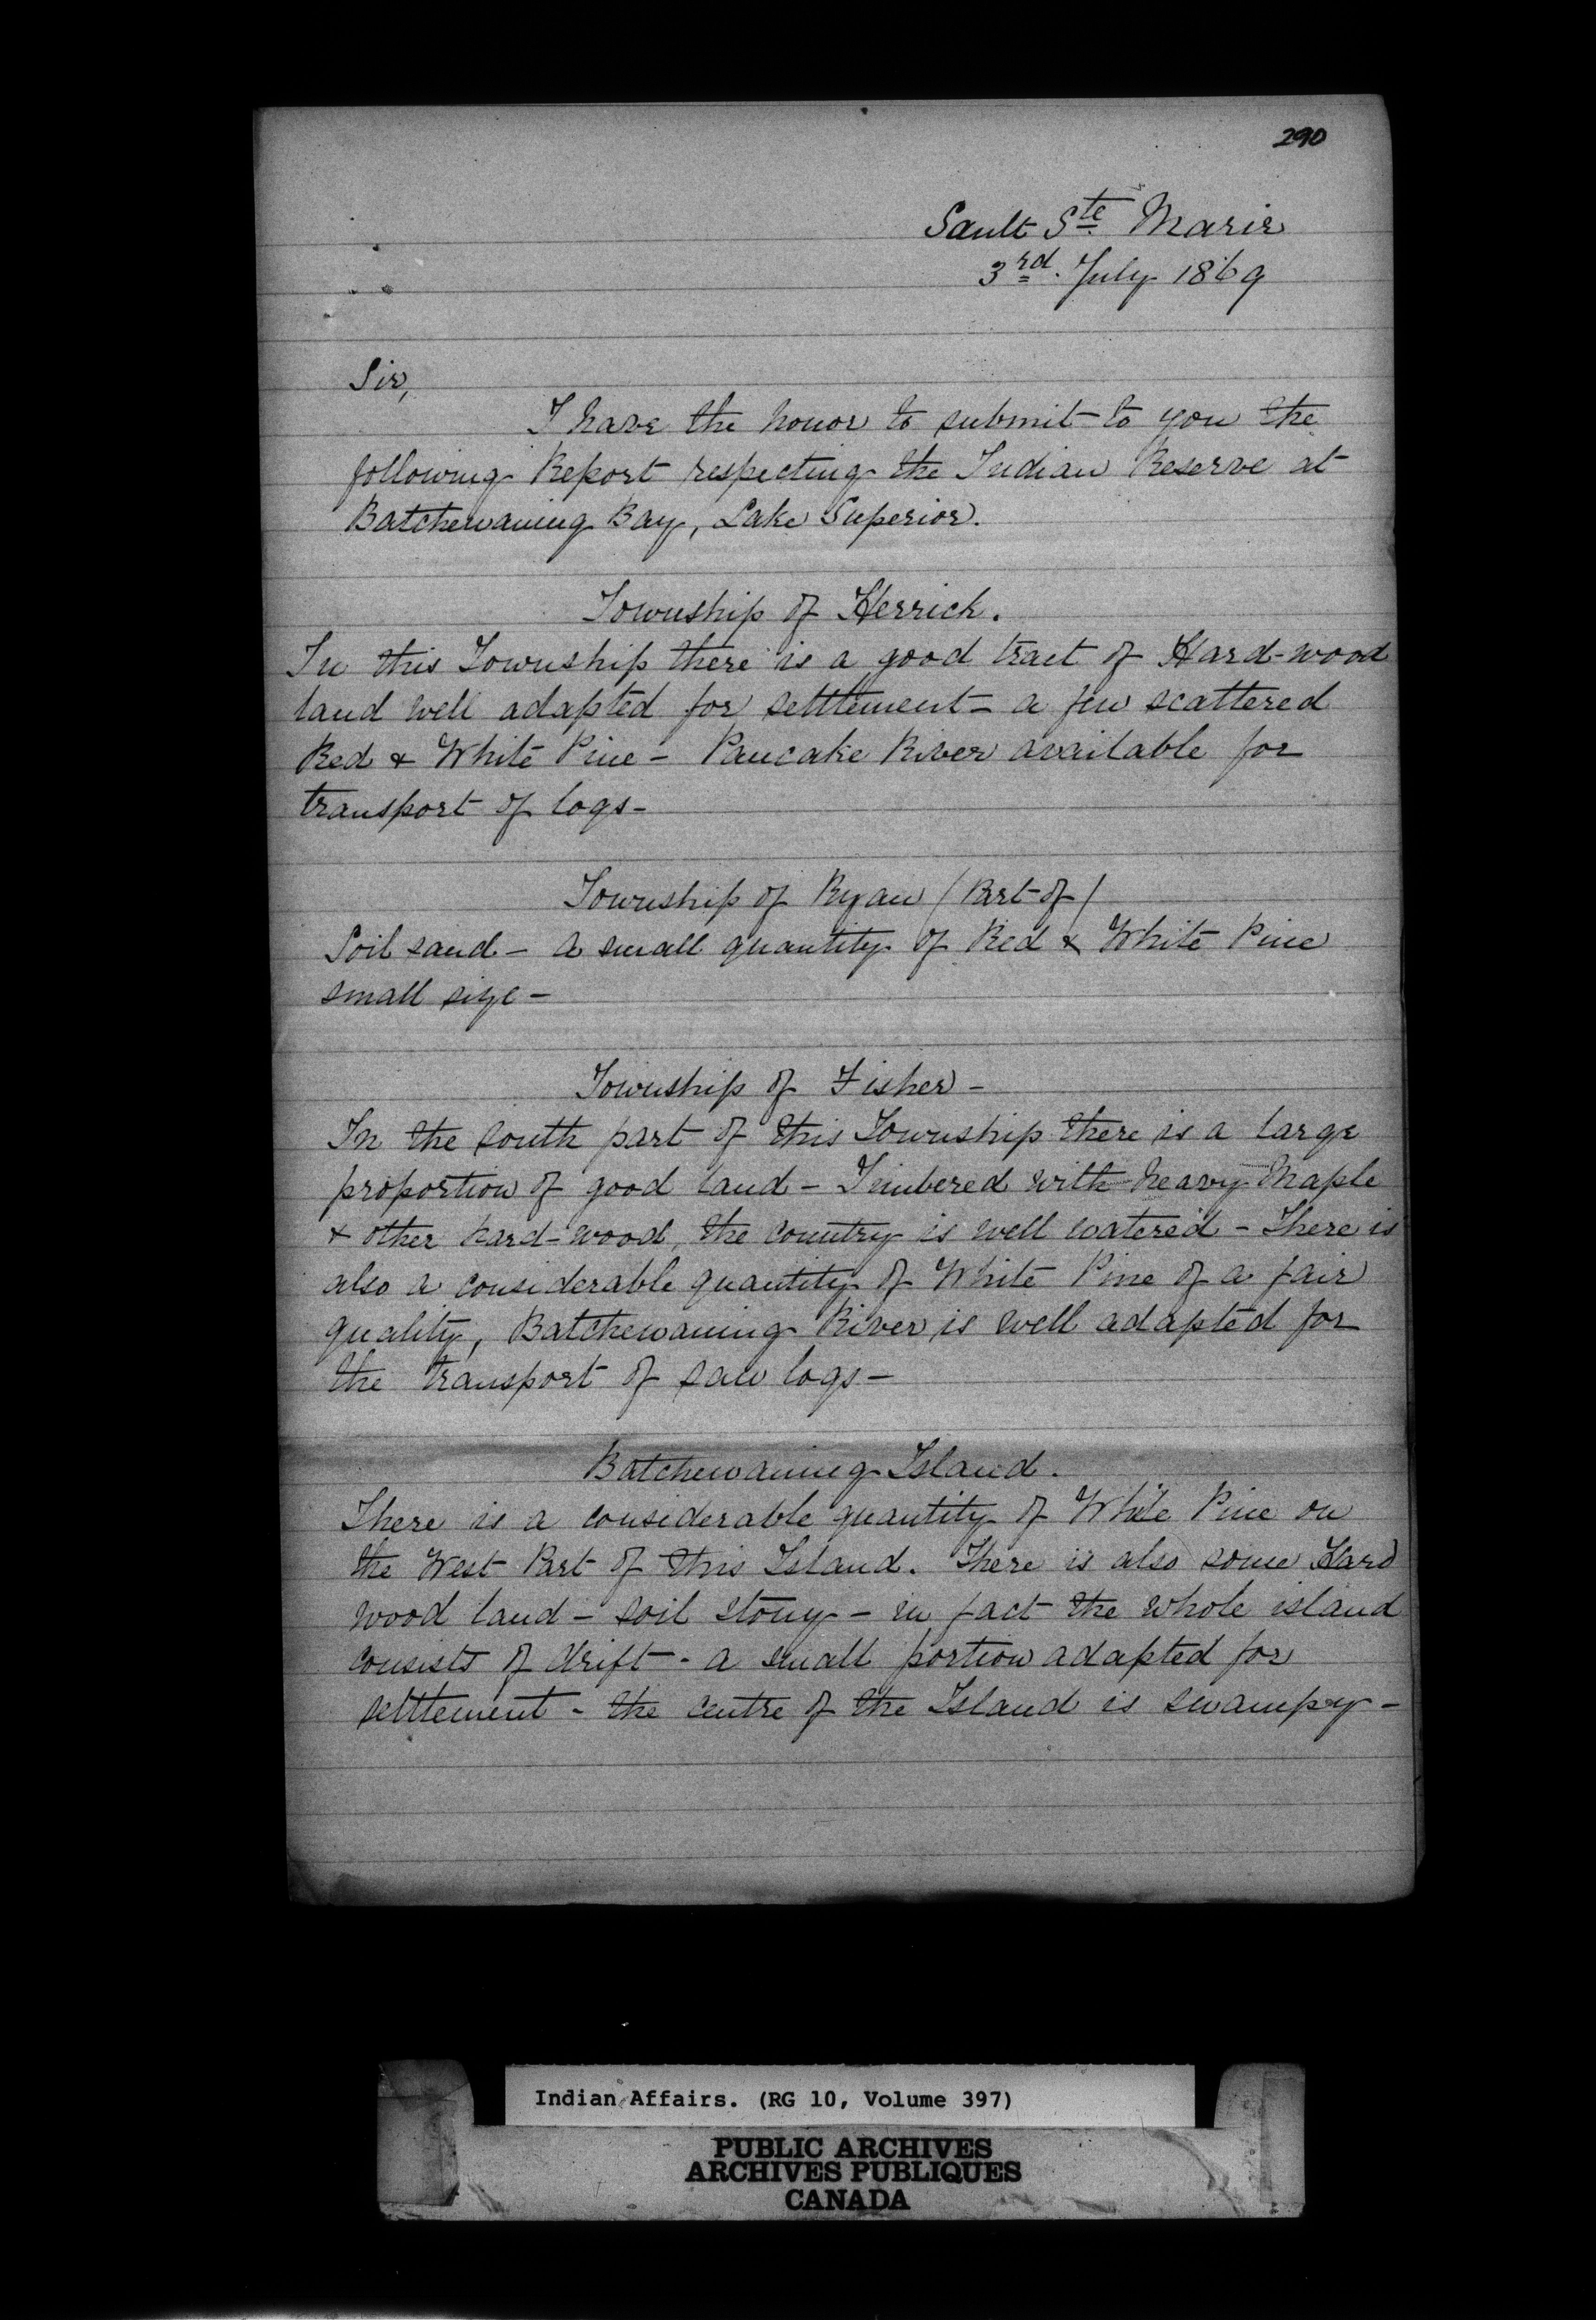 290
Sault Ste Marie
3rd. July 1869
Sir,
I have the honor to submit to you the
following Report respecting the Indian Reserve at
Batchewaning Bay, Lake Superior.
Township of Herrick.
In this Township there is a good tract of Hard-wood
land well adapted for setttement - a few scattered
Red & White Pine - Pancake River available for
transport of logs -
Township of Ryan / Part of /
Soil sand - a small quantity of Red & White Pine
small size -
Township of Fisher -
In the south part of this Township there is a large
proportion of good land - Timbered with heavy Maple
& other hard-wood, the country is well watered - There is
also a considerable quantity of White Pine of a fair
quality, Batchewaning River is well adapted for
the transport of saw logs -
Batchewaning Island.
There is a considerable quantity of White Pine on
the West Part of this Island. There is also some Hard
wood land - soil stony - in fact the whole island
consists of drift - a small portion adapted for
setttement - the centre of the Island is swampy -
Indian Affairs. (RG 10, Volume 397)
PUBLIC ARCHIVES
ARCHIVES PUBLIQUES
CANADA